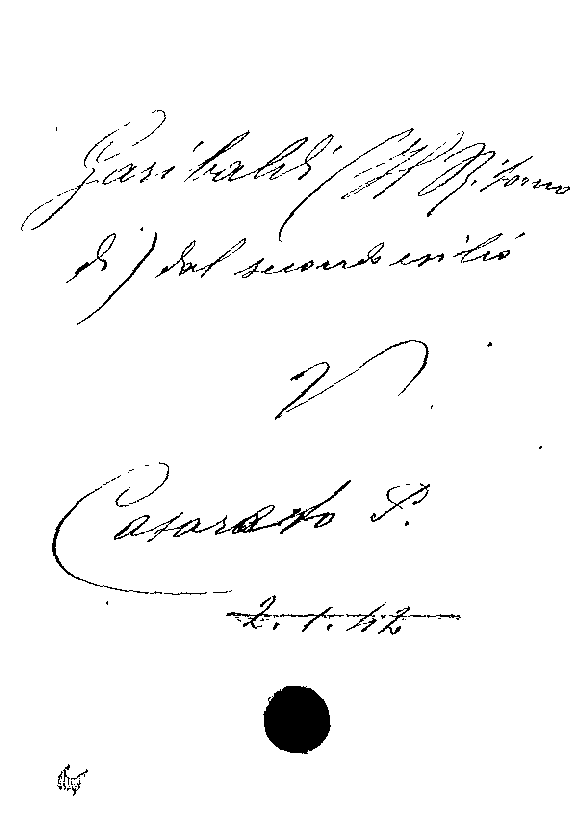 Garibaldi (Il Ritorno
di) dal secondo esilio
V.
Casareto P.
2.1.42